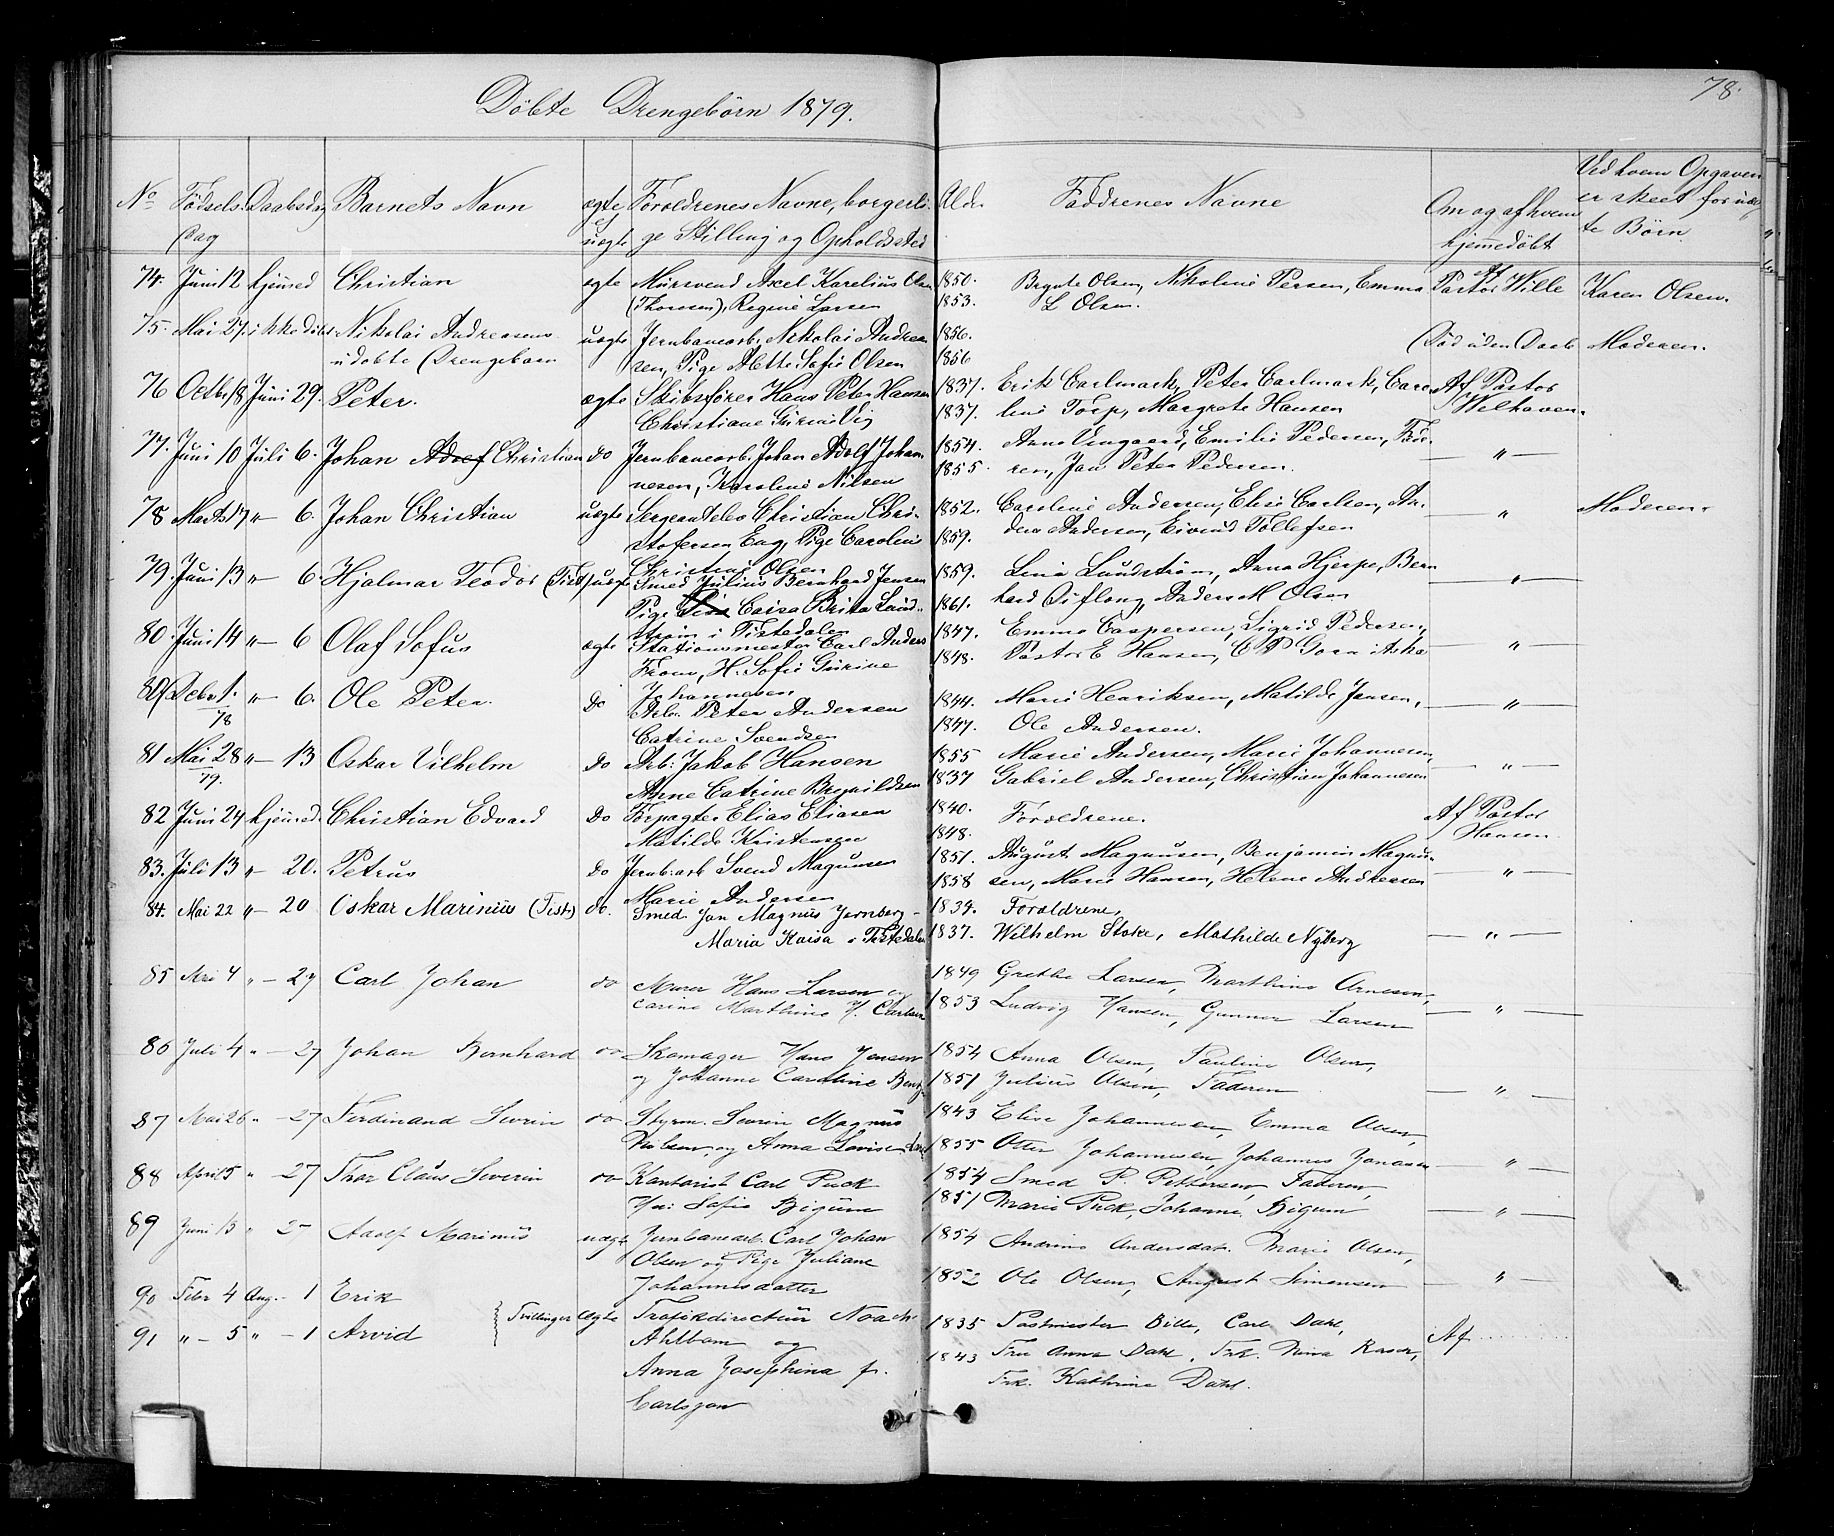 78.
Döbte Drengebörn 1879.
No Födsels Dag Daabsdag Barnets Navn ægte el uægte Forældrenes Navne, borgerlige Stilling og Opholdssted Alder Faddrenes Navne Om og af hvem hjemmedöbt Ved hvem Opgaven er skeet for uægte Börn
74. Juni 12 hjemmed Christian ægte Mursvend Axel Karelius Olsen 1850. Olsen, Nikoline Persen, Emma Af Pastor Wille Karen Olsen.
(Thoresen), Regine Larsen 1853. L Olsen.
75. Mai 27. ikke döbt Nikolai Andreasens uægte Jernbanearb. Nikolai Andrea- 1856. Död uden Daab Moderen.
udöbte Drengebarn sen, Pige Mette Sofie Olsen 1856
76 Octbr. 18 Juni 29. Peter. ægte Skibsförer Hans Peter Hansen 1837. Erik Carlmark, Peter Carlmark, Caro- Af Pastor
Christiane Gurine Vig 1837. line Torp, Margrete Hansen Welhaven.
77. Juni 10 Juli 6. Johan Christian do Jernbanearb. Johan Adolf Johan- 1854. Anne Emilie Pedersen, — " —
nesen, Karoline Nilsen 1855. Jan Peter Pedersen.
78 Marts 17 " — 6. Johan Christian uægte Sergeantelev Christian Chri- 1852. Caroline Andersen, Elise Carlsen, An- — " — Moderen.
stofersen Eng, Pige Caroline 1859. Andersen, Eivind Tollefsen
Christine Olsen
79. Juni 13 " — 6. Hjalmar Teodor (Tist) uægte Smed Julius Bernhard Jensen 1859. Lina Lundström, Anna Hjerpe, Bern- — " —
Pige Caisa Brita Lund- 1861. hard Anders M Olsen
ström i Tistedalen
80. Juni 14 " — 6 Olaf Sofus ægte Stationsmester Carl Anders 1847. Emma Caspersen, Sigrid Pedersen, — " —
From, H. Sofie Gurine 1848. Pastor E Hansen, C P
Johannesen
80/ Decbr 1. 78 " — 6. Ole Peter. do Arb. Peter Andersen 1844. Marie Henriksen, Matilde Jansen, — " —
Catrine Svendsen 1847. Ole Andersen.
81 Mai 28 79. " — 13 Oskar Vilhelm do Arb: Jakob Hansen 1855 Marie Andersen, Marie Johannesen, — " —
Anne Catrine 1837 Gabriel Andersen, Christian Johannesen
82 Juni 24 hjemmed. Christian Edvard do Forpagter Elias Eliasen 1840. Forældrene. Af Pastor
Matilde Kristensen 1848. Hansen.
83. Juli 13 " — 20. Petrus do Jernb.arb Svend Magnusen 1851. August Magnusen, Benjamin Magnu- — " —
Marie Andersen 1858 sen, Marie Hansen, Helene Andreasen
84. Mai 22 " — 20 Oskar Marinius (Tist.) do. Smed. Jan Magnus Jernberg - 1839. Forældrene,
Maria Kaisa i Tistedalen 1837. Wilhelm Stoke, Mathilde Nyberg — " —
85 Mai 4 " — 27 Carl Johan do Murer Hans Larsen og 1849 Grethe Larsen, Marthine Arnesen,
Carine Marthine H. Carlsen 1853 Ludvig Hansen, Gunner Larsen — " —
86 Juli 4 " — 27 Johan Bernhard do Skomager Hans Jensen 1854 Anna Olsen, Pauline Olsen,
og Johanne Caroline 1851 Julius Olsen, Faderen — " —
87 Mai 26 " — 27 Ferdinand Severin do Styrm. Severin Magnus 1843 Elise Johannesen, Emma Olsen,
Nielsen, og Anna Lovise 1855 Otter Johannesen, Johannes Jonasen — " —
88 April 5 " 27 Thor Claus Severin do Kontorist Carl Puck 1854 Smed P. Pettersen, Faderen,
Sofie Bigum 1851 Marie Puck, Johanne Bigum — " —
89 Juni 15 " 27 Adolf Marinius uægte Jernbanearb. Carl Johan 1854 Andrine Andersdat. Marie Olsen,
Olsen og Pige Juliane 1852 Ole Olsen, August Simensen — " —
Johannesdatter
90 Febr 4 Aug. - 1 Erik Tvillinger ægte Trafikdirecteur Noach 1835 Postmester Bille, Carl Dahl,
91 " — 5 " — 1 Arvid Ahlbom og 1843 Fru Anna Dahl, Frk. Nina Af
Anna Josephina f. Frk. Kathrine Dahl.
Carlsson